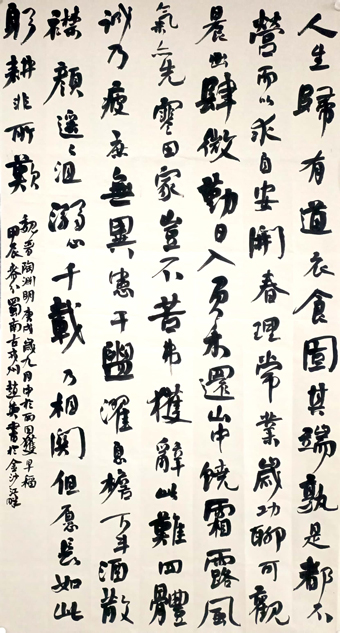 人生歸有道衣食固其端孰是都不
營而以求自安開春理常業歲功聊可觀
晨出肆微勤日入負耒還山中饒霜露風
氣亦先寒田家豈不苦弗獲辭此難四體
誠乃疲庶無異患干盥濯息檐下斗酒散
襟顏遥々沮溺心千載乃相關但愿長如此
躬耕非所歎
魏晉陶淵明庚戌歲九月中於西田獲早稻
甲辰春分蜀南古戎州趙書於金沙江畔